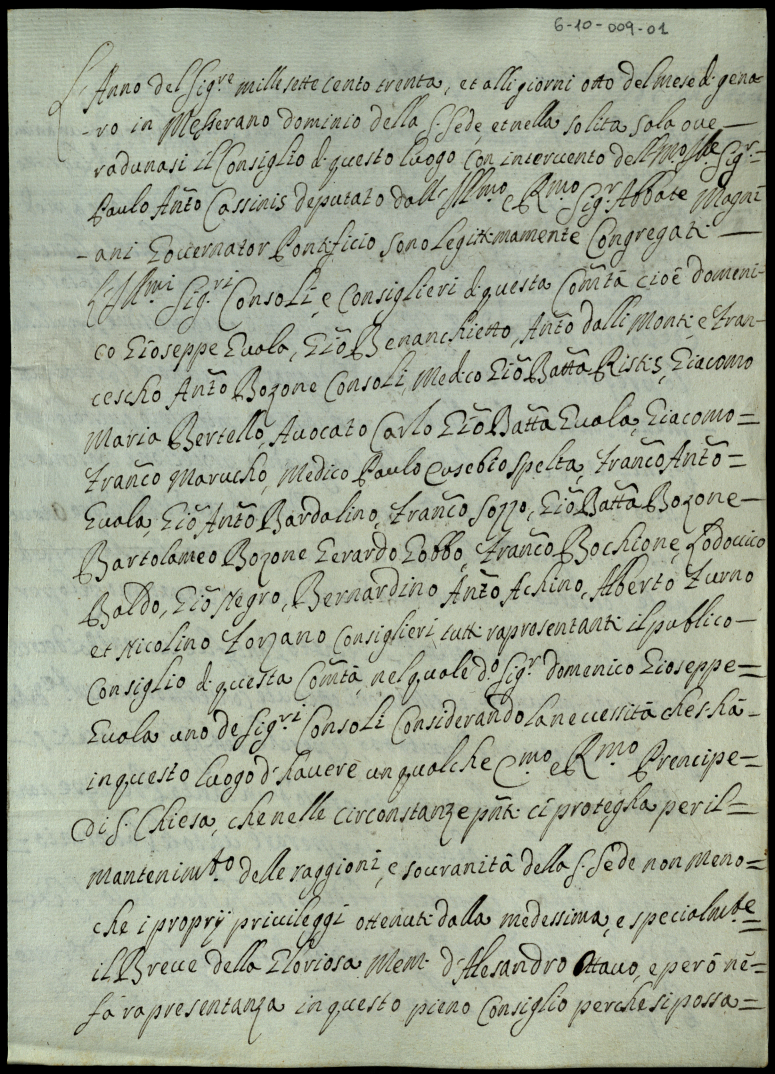 6-10-009-01
L'Anno del Sig.re mille sette cento trenta, et alli giorni otto del mese di gena-
-ro in Messerano dominio della S. Sede, et nella solita sala ove —
radunasi il Consiglio di questo luogo con intervento dell'Ill.mo Sig.r =
Paulo Anto Cassinis deputato dall'Ill.mo e R.mo Sig.r Abbate Magni
-ani Governator Pontificio sono legitimamente Congregati —
L'Ill.mi Sig.ri Consoli, e Consiglieri di questa Comtà cioè domeni-
co Gioseppe Gvala, Gio Benanchietto, Anto dalli Monti e Fran-
cescho Anto Bozone Consoli, Medico Gio Batta Ristis, Giacomo
Maria Bertello, Avocato Carlo Gio Batta Gvala, Giacomo =
Franco Marucho, Medico Paulo Eusebio Spelta, Franco Anto =
Gvala, Gio Anto Bardalino, Franco Sozzo, Gio Batta Bozone —
Bartolameo Bozone Gerardo Gobbo, Franco Bochione, Lodovico
Baldo, Gio Negro, Bernardino Anto Achino, Alberto Furno
et Nicolino Forzano Consiglieri, tutti rapresentanti il publico —
Consiglio di questa Comtà, nel quale d.o Sig.r domenico Gioseppe =
Gvala uno de Sig.ri Consoli Considerando la necessità che s'hà -
in questo luogo d'havere un qualche E.mo e R.mo Prencipe =
di S. Chiesa, che nelle circonstanze pnti ci protegha per il =
mantenim.to delle raggioni, e souranità della S. Sede non meno =
che i proprÿ privileggi ottenuti dalla medessima, e specialm.te =
il Breve della Gloriosa Mem. d'Alesandro Ottavo, e però nè =
fà rapresentanza in questo pieno Consiglio perche si possa =